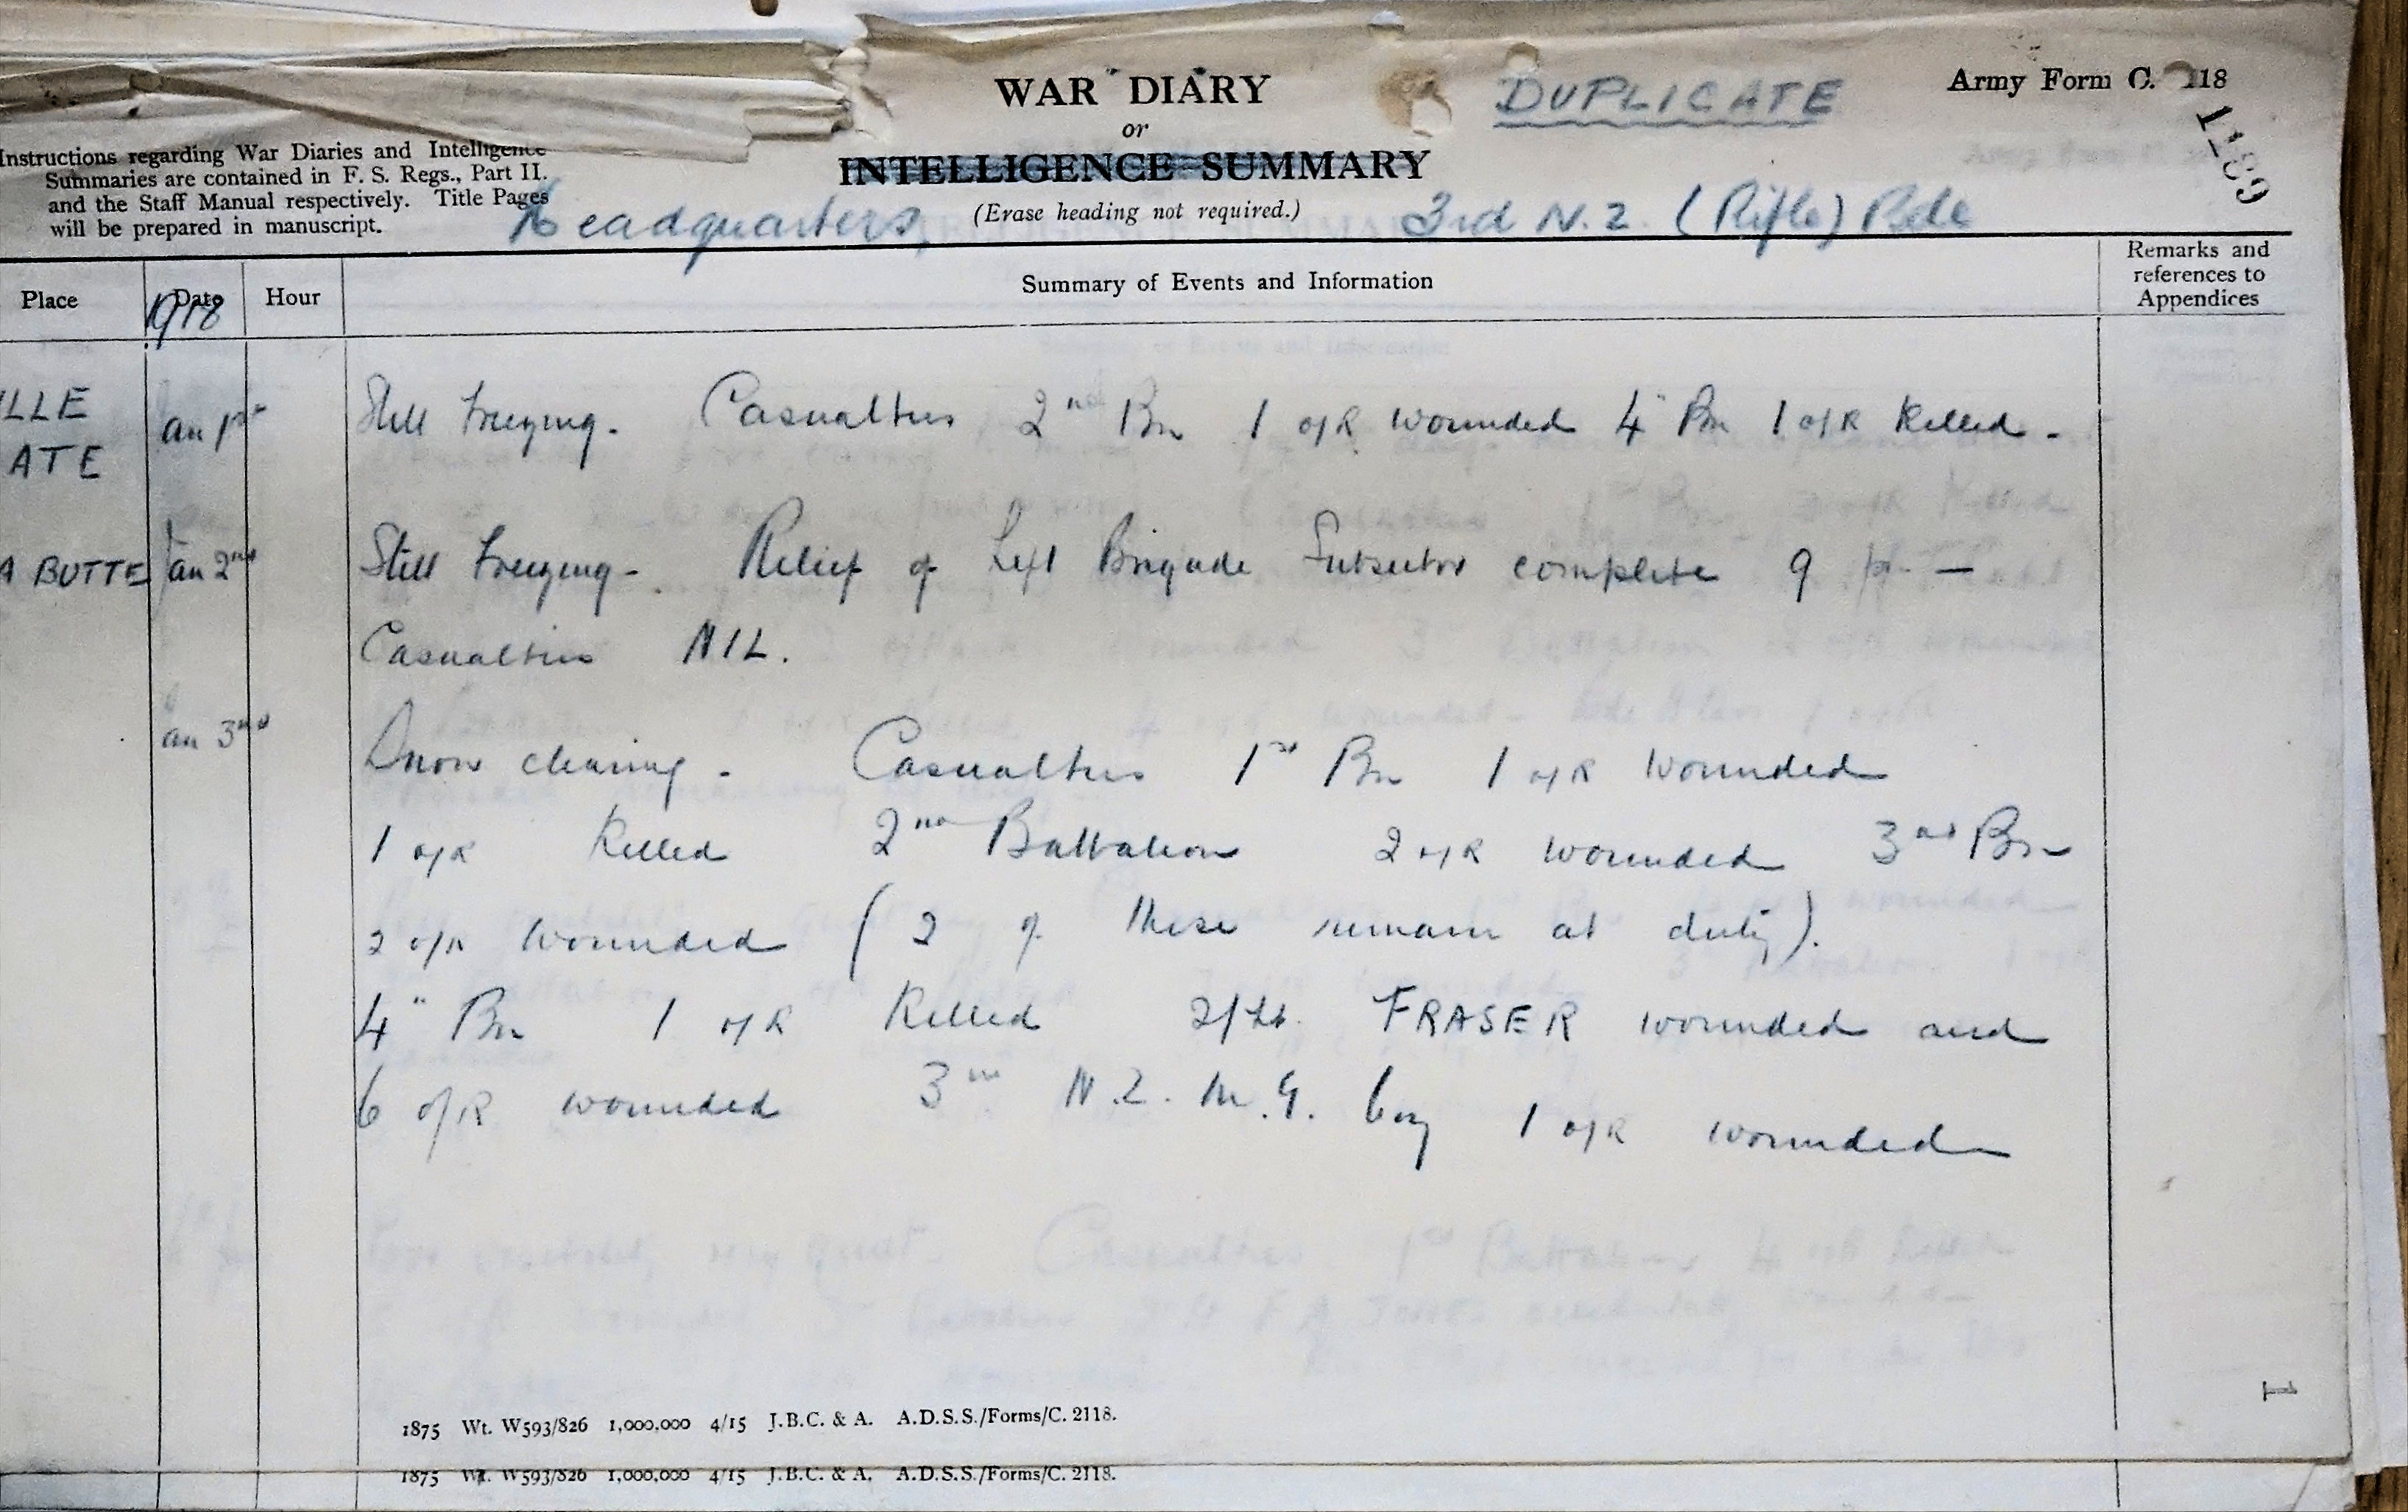 WAR DIARY
or
INTELLIGENCE SUMMARY
(Erase heading not required.)
DUPLICATE
Army Form C. 2118
1189
Instructions regarding War Diaries and Intelligence
Summaries are contained in F. S. Regs., Part II.
and the Staff Manual respectively. Title Pages
will be prepared in manuscript.
Headquarters, 3rd N.Z. (Rifle) Bde
Place Date Hour Summary of Events and Information Remarks and references to Appendices
1918
ILLE
ATE
an 1st Still freezing. Casualties 2nd Bn 1 o/R wounded 4" Bn 1 o/R Killed -
A BUTTE Jan 2nd Still freezing - Relief of Left Brigade Subsector complete 9 p. -
Casualties NIL.
an 3rd Snow clearing - Casualties 1st Bn 1 o/R wounded
1 o/R Killed 2nd Battalion 2 o/R wounded 3rd Bn
2 o/R wounded (2 of these remain at duty).
4" Bn 1 o/R Killed 2/Lt. FRASER wounded and
6 o/R wounded 3rd N.Z. M.G. Coy 1 o/R wounded
1
1875 Wt. W593/826 1,000,000 4/15 J.B.C. & A. A.D.S.S./Forms/C. 2118.
1875 Wt. W593/826 1,000,000 4/15 J.B.C. & A. A.D.S.S./Forms/C. 2118.